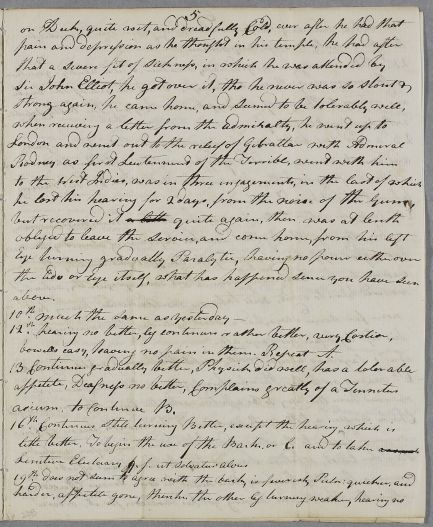 5
on Deck, quite wet, and dreadfully Cold, ever after he had that
pain and depression as he thought in his temple, he had after
that a severe fit of Sickness, in which he was attended by
Sir John Elliot, he got over it, tho he never was so Stout &
strong again, he came home, and seemed to be tolerably well,
when receiving a letter from the admiralty, he went up to
London and went out to the relief of Gibraltar with Admiral
Rodney as first Lieutennent of the Terrible, went with him
to the West Indies, was in three ingagements, in the last of which
he lost his hearing for 2 days, from the noise of the Guns,
but recovered it quite again, then was at lenth
obliged to leave the Service, and come home, from his left
Eye turning gradually Paralytic, having no power either over
the Lids or Eye itself, what has happened since you have seen
above.
10th. much the same as yesterday –
12th. hearing no better, by continues rather better, very Costive,
bowels easy, having no pain in them. Repeat A
13 Continues gradually better, Physick did well, has a tolerable
appetite, Deafness no better, Complains greatly of a Tinnitus
aurium. to Continue B.
16th. Continues still turning Better, except the hearing which is
little better. To begin the use of the Bark. or C. and to take
Lenitive Electuary q. s. ut Solvatur alvus
19th. does not seem to agree with the bark, is feverish, Pulse quicker, and
harder, appetite gone, thinks the other Eye turning weaker, hearing no